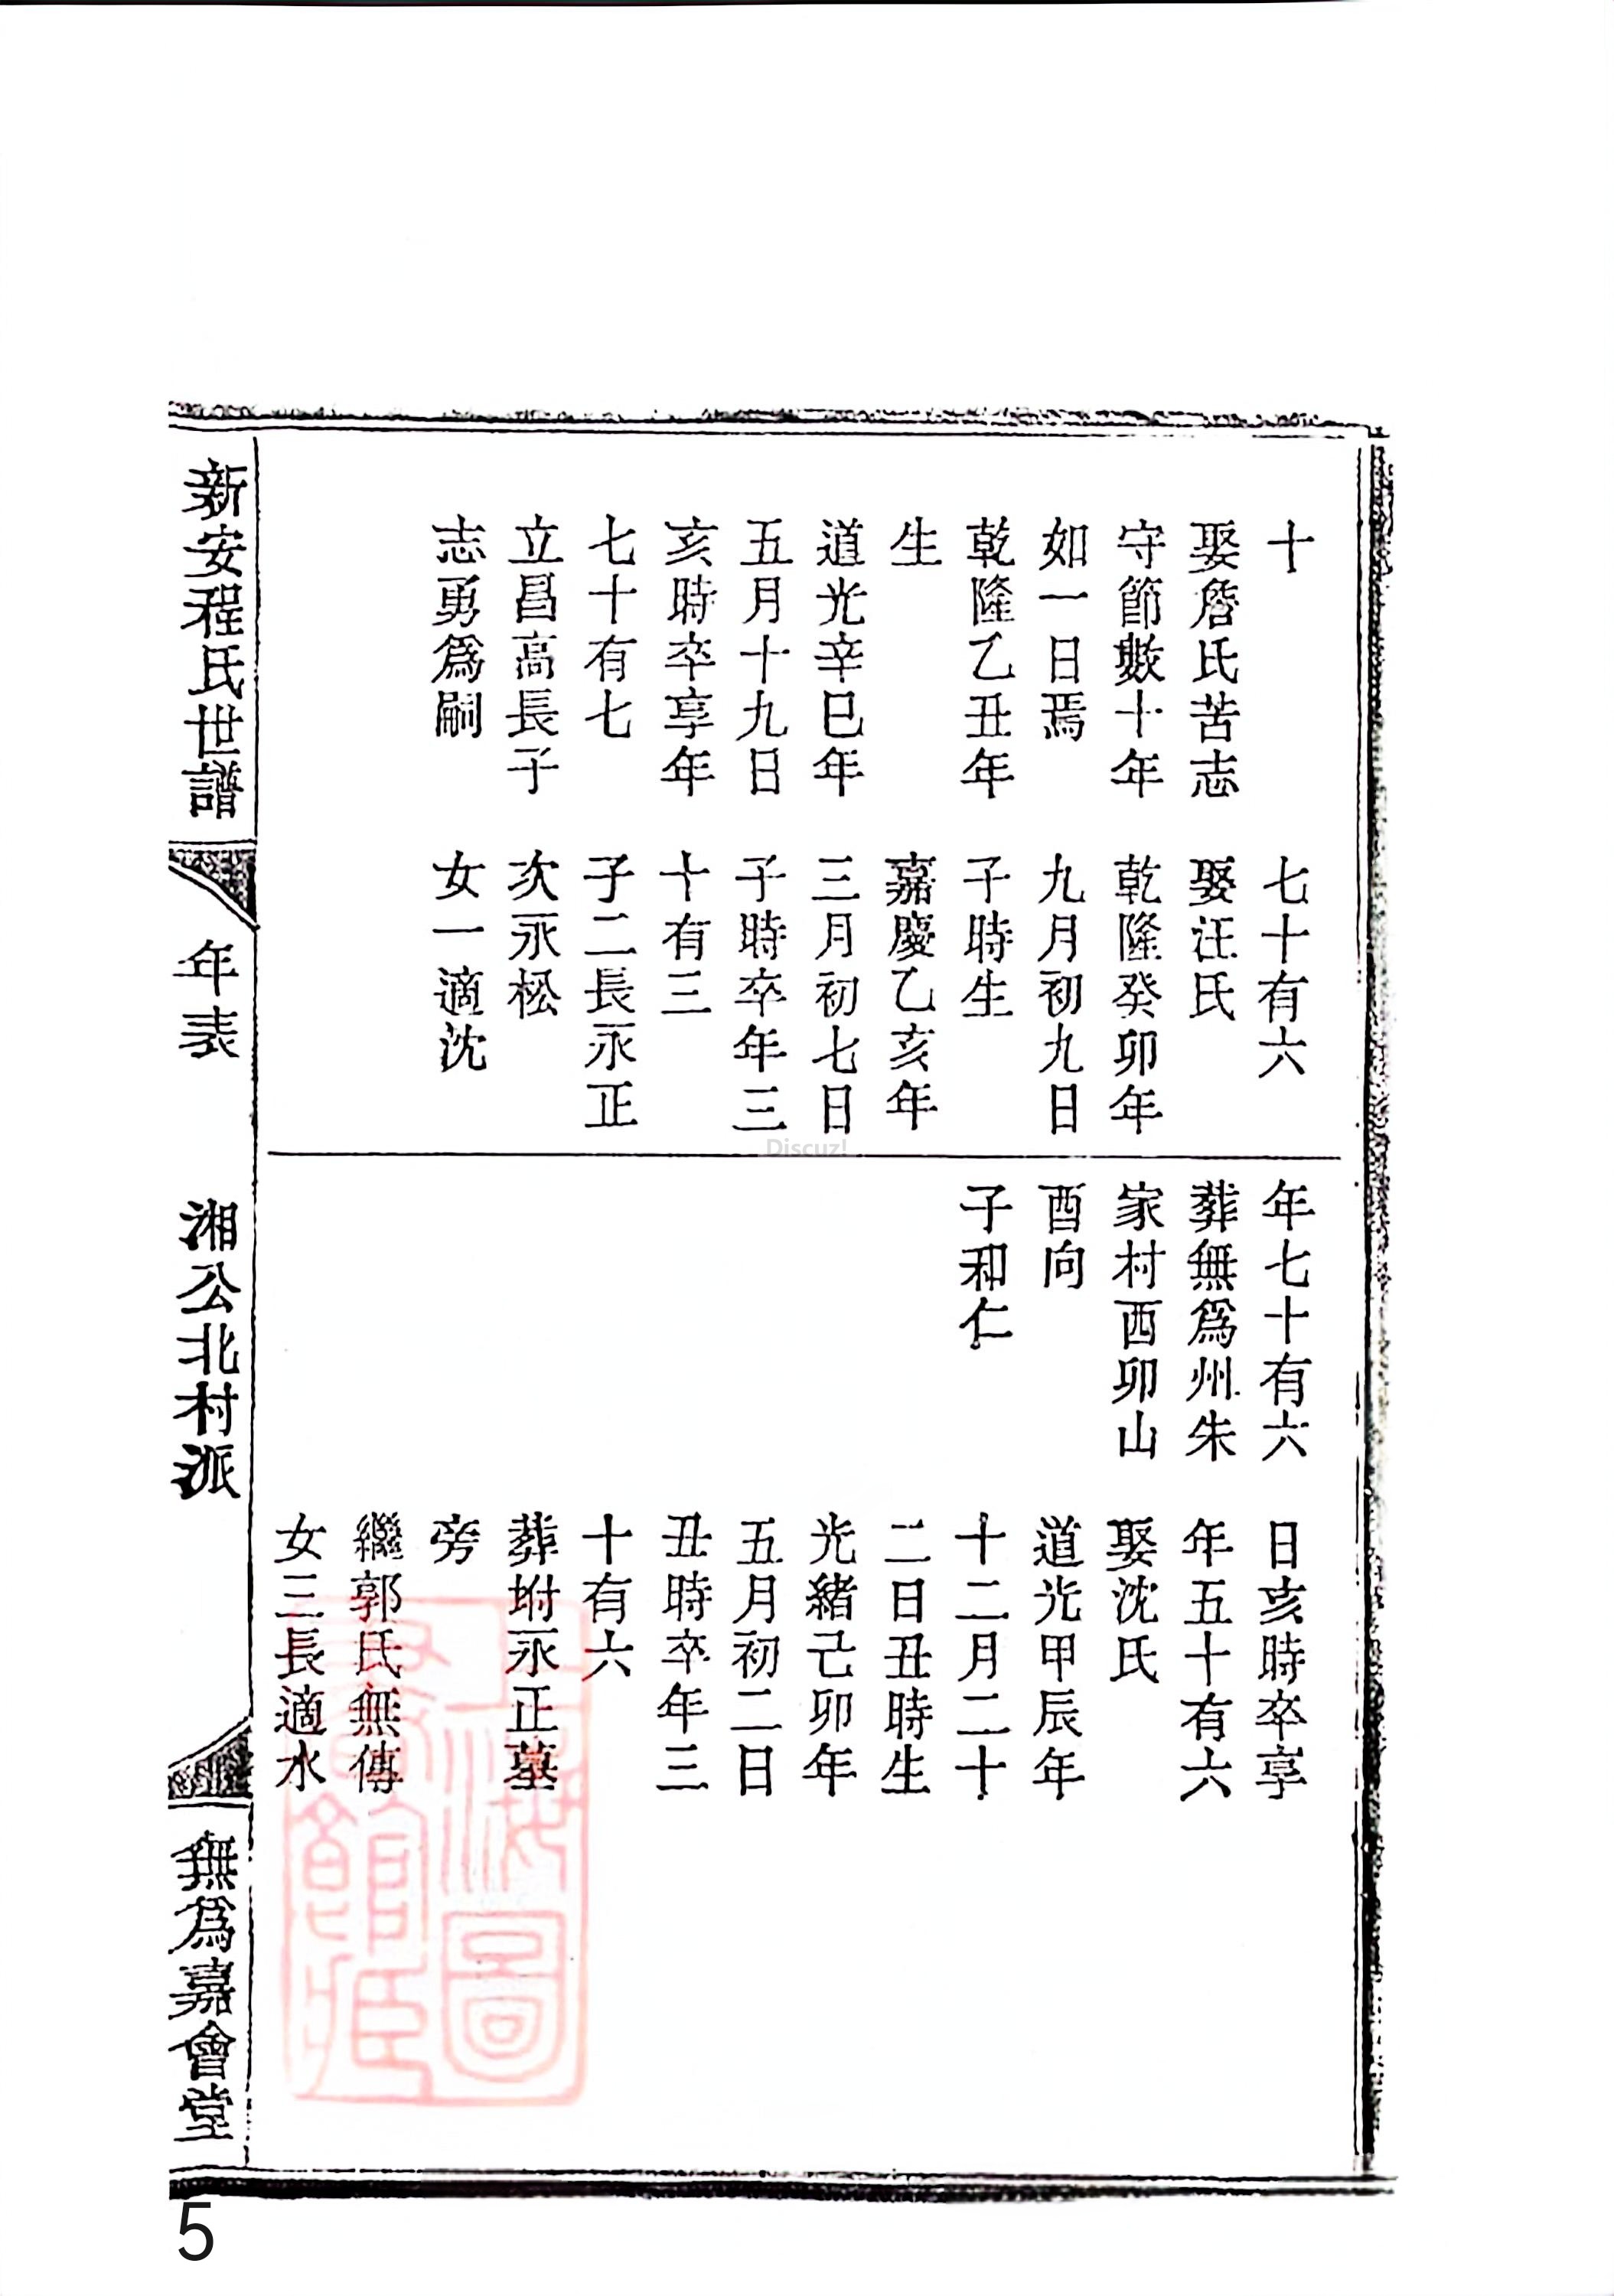 十
娶詹氏苦志
守節數十年
如一日焉
乾隆乙丑年
生
道光辛巳年
五月十九日
亥時卒享年
七十有七
立昌高長子
志勇爲嗣
七十有六
娶汪氏
乾隆癸卯年
九月初九日
子時生
嘉慶乙亥年
三月初七日
子時卒年三
十有三
子二長永正
次永松
女一適沈
年七十有六
葬無爲州朱
家村西卯山
酉向
子和仁
日亥時卒享
年五十有六
娶沈氏
道光甲辰年
十二月二十
二日丑時生
光緒己卯年
五月初二日
丑時卒年三
十有六
葬坿永正墓
旁
繼郭氏無傳
女三長適水
新安程氏世譜
年表
湘公北村派
無爲嘉會堂
上海圖
書館藏
Discuz!
5